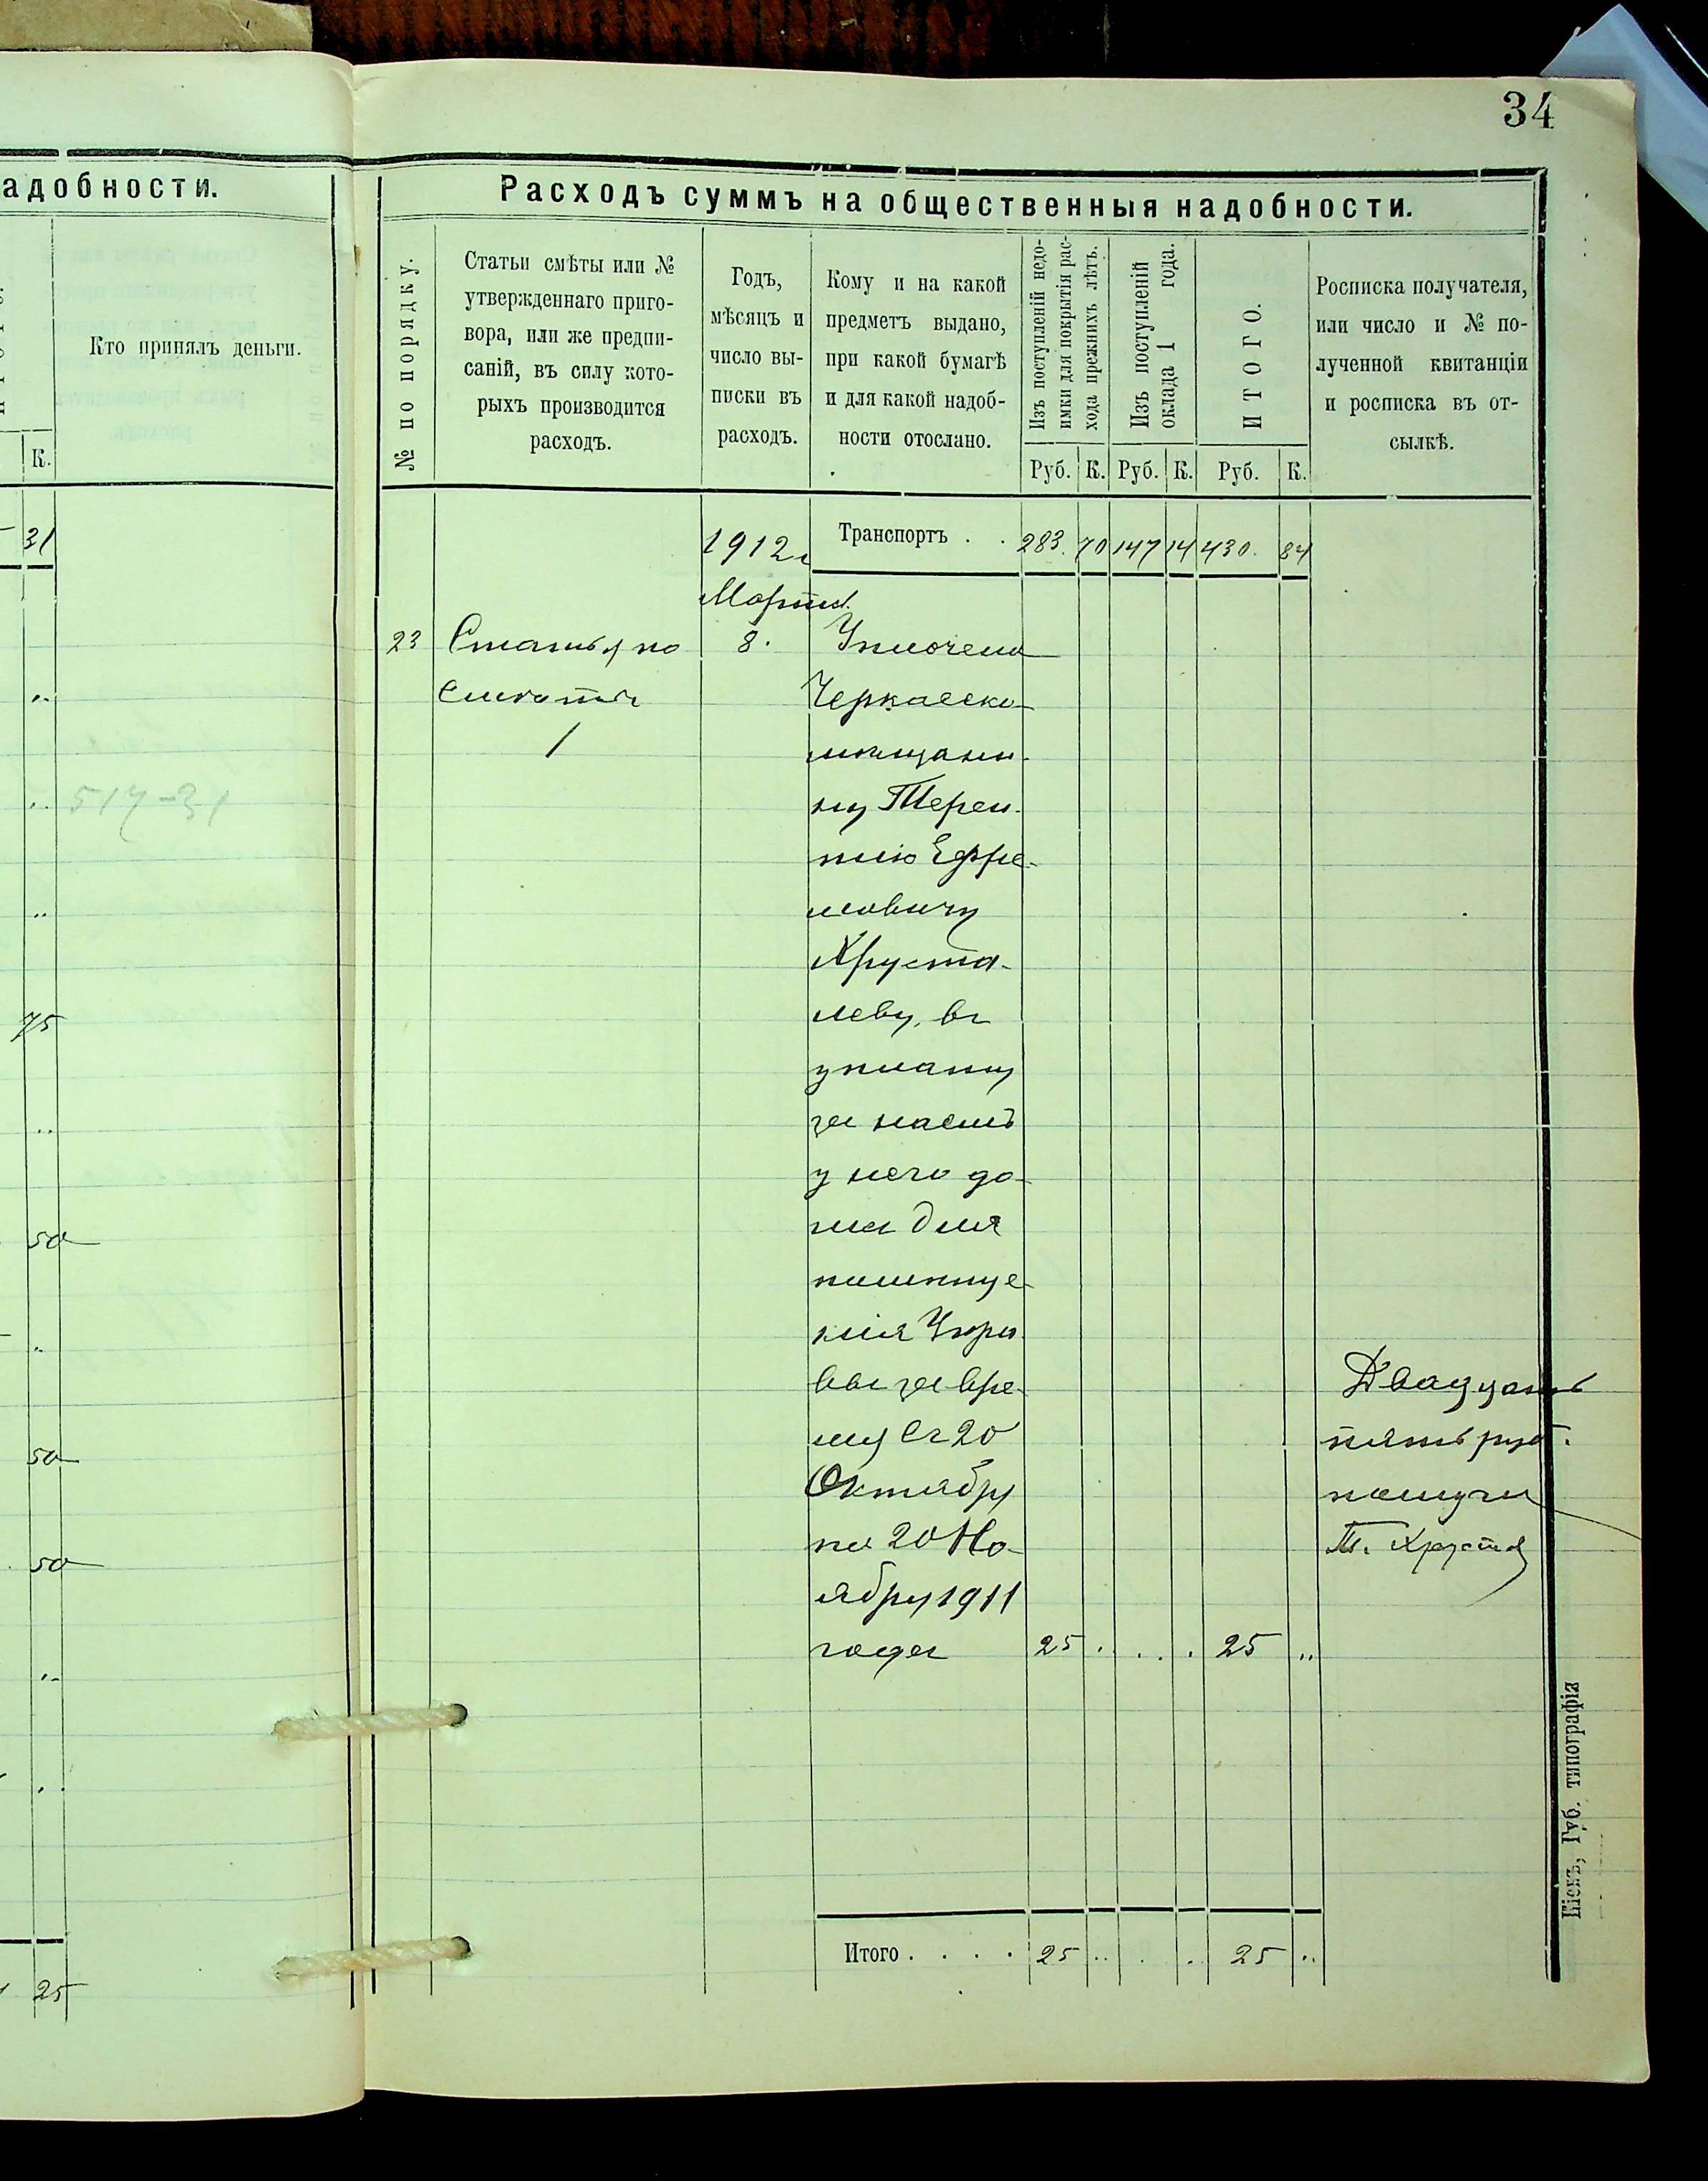 34
адобности.
Кто принялъ деньги.
К.
31
75
50
50
50
25
517-31
Расходъ суммъ на общественныя надобности.
№ по порядку.
Статьи смѣты или №
утвержденнаго приго-
вора, или же предпи-
саній, въ силу кото-
рыхъ производится
расходъ.
Годъ,
мѣсяцъ и
число вы-
писки въ
расходъ.
Кому и на какой
предметъ выдано,
при какой бумагѣ
и для какой надоб-
ности отослано.
Изъ поступленій недо-
имки для покрытія рас-
хода прежнихъ лѣтъ.
Изъ поступленій
оклада 1 года.
ИТОГО.
Росписка получателя,
или число и № по-
лученной квитанціи
и росписка въ от-
сылкѣ.
Руб. К. Руб. К. Руб. К.
1912г
Транспортъ . . 283. 70 147 14 430. 84
Марта
23 Статья по 8. Уплочено
Черкасско
мѣщани-
ну Терен-
тію Ефре-
мовичу
Хруста-
леву, въ
уплату
за наемъ
у него до-
ма для
помѣще-
нія Упра
вы за вре-
мя съ 20
Октября
по 20 Но-
ября 1911
года 25 . . . . 25 „
Двадцать
пять руб.
получил
Т. Хруста
Итого . . . . 25 .. . . 25 ..
Кіевъ, Губ. типографія